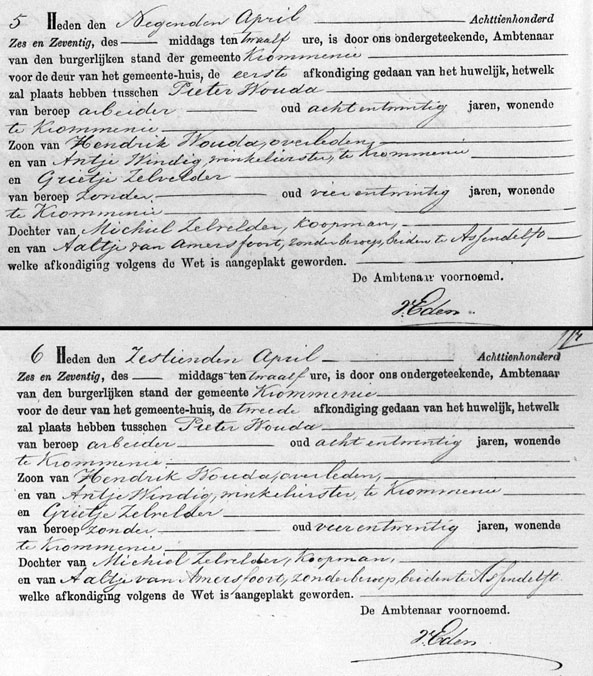 5 Heden den Negenden April Achttienhonderd
Zes en Zeventig, des middags ten twaalf ure, is door ons ondergeteekende, Ambtenaar
van den burgerlijken stand der gemeente Krommenie
voor de deur van het gemeente-huis, de eerste afkondiging gedaan van het huwelijk, hetwelk
zal plaats hebben tusschen Pieter Wouda
van beroep arbeider oud achtentwintig jaren, wonende
te Krommenie
Zoon van Hendrik Wouda, overleden,
en van Antje Windig, winkelierster, te Krommenie
en Grietje Zelvelder
van beroep zonder oud vierentwintig jaren, wonende
te Krommenie
Dochter van Michiel Zelvelder, Koopman,
en van Aaltje van Amersfoort, zonder beroep, beiden te Assendelft
welke afkondiging volgens de Wet is aangeplakt geworden.
De Ambtenaar voornoemd.
v. Eden
6 Heden den Zestienden April Achttienhonderd
Zes en Zeventig, des middags ten twaalf ure, is door ons ondergeteekende, Ambtenaar
van den burgerlijken stand der gemeente Krommenie
voor de deur van het gemeente-huis, de tweede afkondiging gedaan van het huwelijk, hetwelk
zal plaats hebben tusschen Pieter Wouda
van beroep arbeider oud achtentwintig jaren, wonende
te Krommenie
Zoon van Hendrik Wouda, overleden,
en van Antje Windig, winkelierster, te Krommenie
en Grietje Zelvelder
van beroep zonder oud vierentwintig jaren, wonende
te Krommenie
Dochter van Michiel Zelvelder, Koopman,
en van Aaltje van Amersfoort, zonder beroep, beiden te Assendelft
welke afkondiging volgens de Wet is aangeplakt geworden.
De Ambtenaar voornoemd.
v. Eden